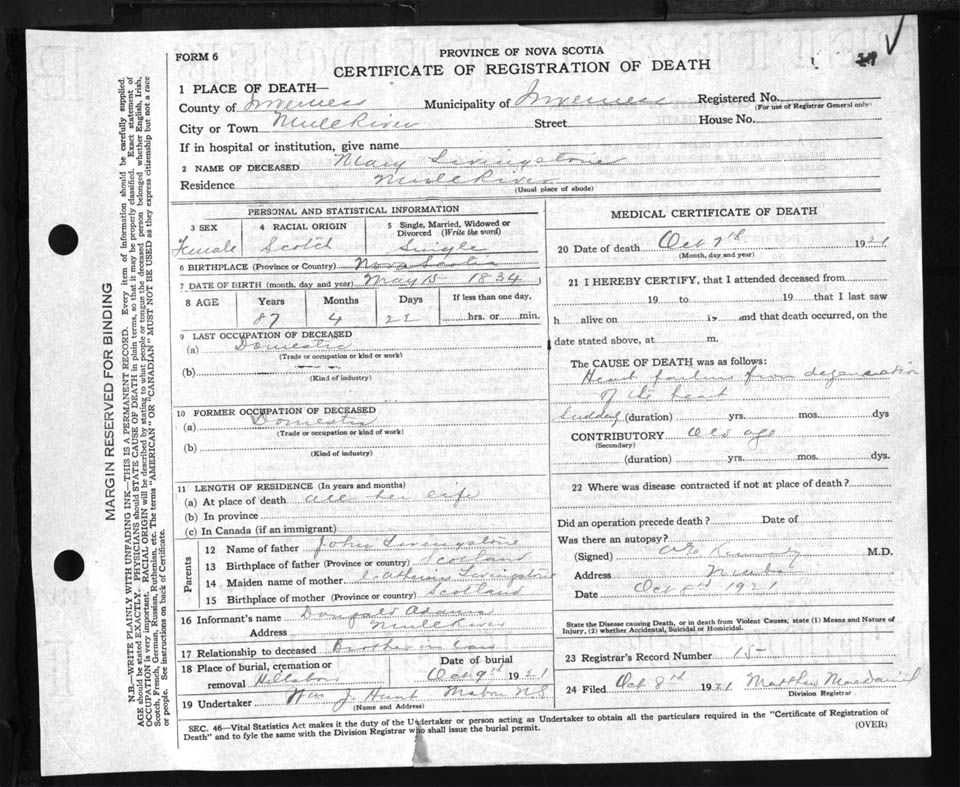 FORM 6
PROVINCE OF NOVA SCOTIA
CERTIFICATE OF REGISTRATION OF DEATH
1 PLACE OF DEATH—
County of Inverness Municipality of Inverness Registered No.
(For use of Registrar General only)
City or Town Mull River Street House No.
If in hospital or institution, give name
2 NAME OF DECEASED Mary Livingstone
Residence Mull River
(Usual place of abode)
MARGIN RESERVED FOR BINDING
N.B.—WRITE PLAINLY WITH UNFADING INK—THIS IS A PERMANENT RECORD. Every item of information should be carefully supplied.
AGE should be stated EXACTLY. PHYSICIANS should STATE CAUSE OF DEATH in plain terms, so that it may be properly classified. Exact statement of
OCCUPATION is very important. RACIAL ORIGIN will be described by stating to what people or tongue the deceased person belonged whether English, Irish,
Scotch, French, German, Russian, Ruthenian, etc. The terms "AMERICAN" or "CANADIAN" MUST NOT BE USED as they express citizenship but not a race
or people. See instructions on back of Certificate.
PERSONAL AND STATISTICAL INFORMATION
3 SEX 4 RACIAL ORIGIN 5 Single, Married, Widowed or
Divorced (Write the word)
Female Scotch Single
6 BIRTHPLACE (Province or Country) Nova Scotia
7 DATE OF BIRTH (month, day and year) May 15 1834
8 AGE Years Months Days If less than one day,
87 4 22 hrs. or min.
9 LAST OCCUPATION OF DECEASED
(a) Domestic
(Trade or occupation or kind or work)
(b)
(Kind of industry)
10 FORMER OCCUPATION OF DECEASED
(a) Domestic
(Trade or occupation or kind of work)
(b)
(Kind of industry)
11 LENGTH OF RESIDENCE (In years and months)
(a) At place of death all her life
(b) In province
(c) In Canada (if an immigrant)
Parents
12 Name of father John Livingstone
13 Birthplace of father (Province or country) Scotland
14 Maiden name of mother Catherine Livingstone
15 Birthplace of mother (Province or country) Scotland
16 Informant's name Dougald Adams
Address Mull River
17 Relationship to deceased Brother in law
18 Place of burial, cremation or Date of burial
removal Hillsboro Oct 9th 1921
19 Undertaker Wm J. Hunt Mabou NS
(Name and Address)
MEDICAL CERTIFICATE OF DEATH
20 Date of death Oct 7th 1921
(Month, day and year)
21 I HEREBY CERTIFY, that I attended deceased from
19 to 19 that I last saw
h alive on 19 and that death occurred, on the
date stated above, at m.
The CAUSE OF DEATH was as follows:
Heart failure from degeneration
of the heart
Sudden (duration) yrs. mos. dys
CONTRIBUTORY Old age
(Secondary)
(duration) yrs. mos. dys.
22 Where was disease contracted if not at place of death?
Did an operation precede death? Date of
Was there an autopsy?
(Signed) Kennedy M.D.
Address Mabou
Date Oct 8th 1921
State the Disease causing Death, or in death from Violent Causes, state (1) Means and Nature of
Injury, (2) whether Accidental, Suicidal or Homicidal.
23 Registrar's Record Number 15
24 Filed Oct 8th 1921 Matthew MacDaniel
Division Registrar
SEC. 46—Vital Statistics Act makes it the duty of the Undertaker or person acting as Undertaker to obtain all the particulars required in the "Certificate of Registration of
Death" and to fyle the same with the Division Registrar who shall issue the burial permit.
(OVER)